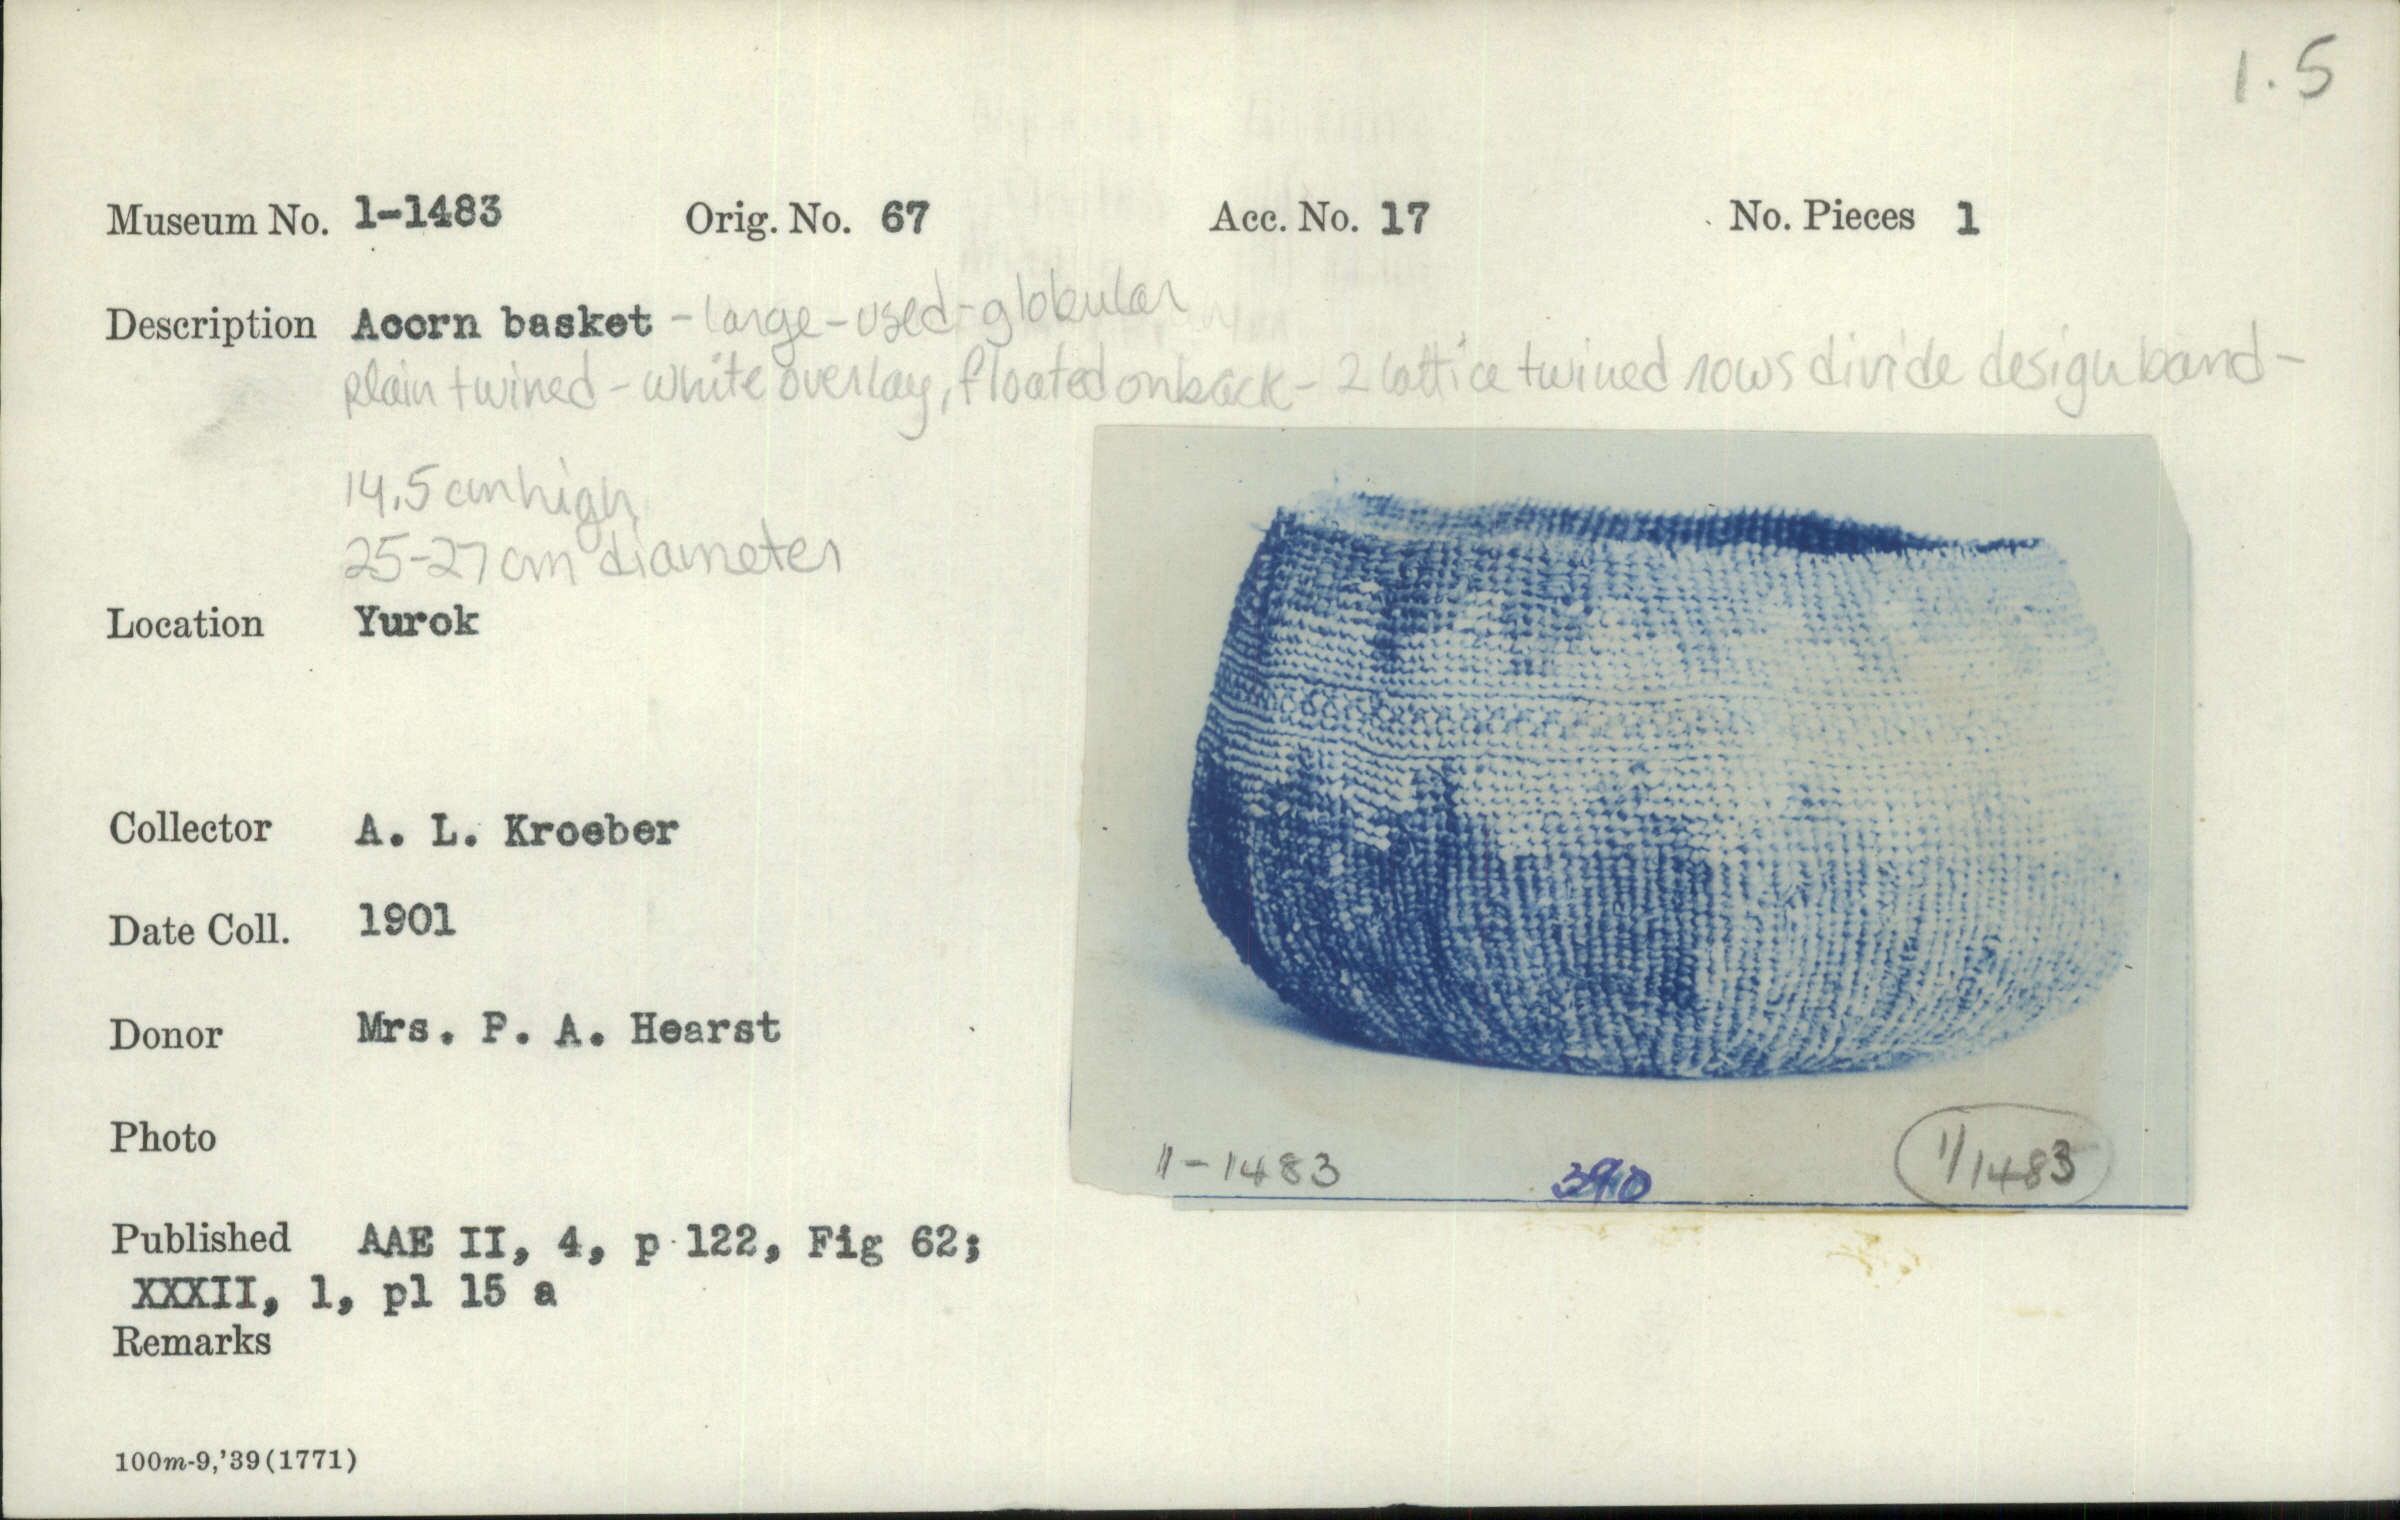 1.5
Museum No. 1-1483 Orig. No. 67 Acc. No. 17 No. Pieces 1
Description Acorn basket - large - used - globular
plain twined - white overlay, floated on back - 2 lattice twined rows divide design band -
14.5 cm high
25-27 cm diameter
Location Yurok
Collector A. L. Kroeber
Date Coll. 1901
Donor Mrs. P. A. Hearst
Photo
11-1483 390 11/1483
Published AAE II, 4, p 122, Fig 62;
XXXII, 1, pl 15 a
Remarks
100m-9,'39(1771)